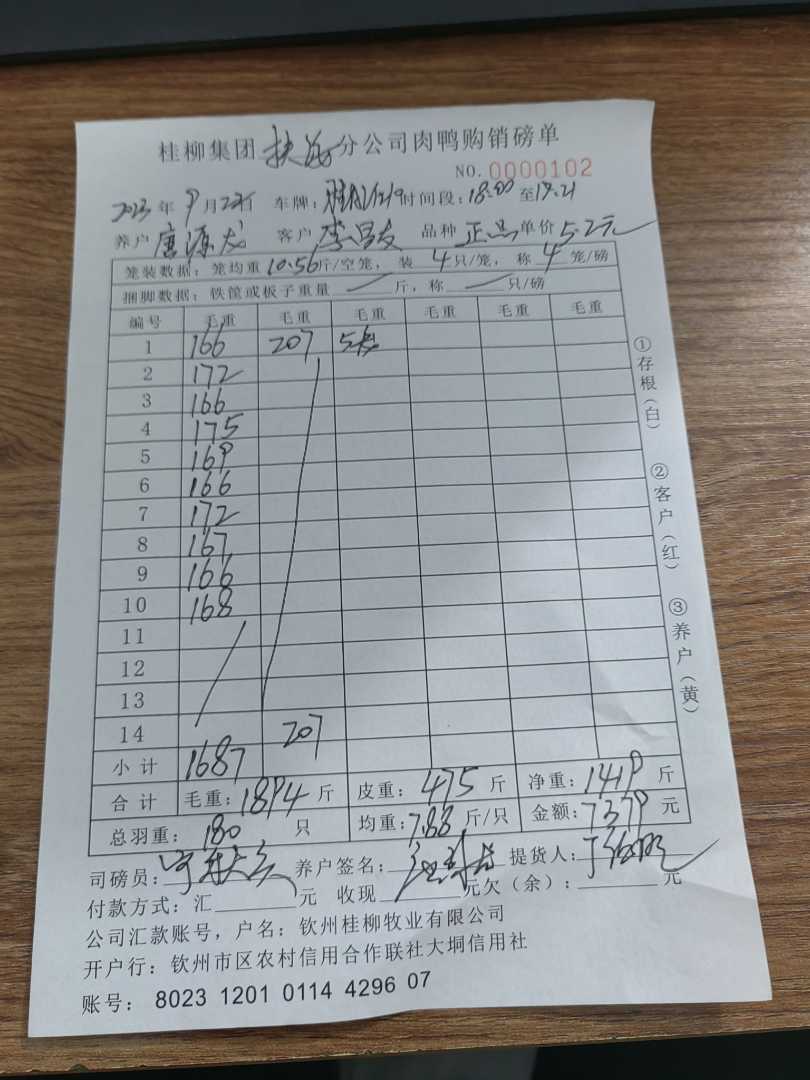 桂柳集团 分公司肉鸭购销磅单
NO.0000102
2023年9月22日 车牌: 时间段:18:00至19:21
养户 唐源龙 客户 李昌友 品种 正品 单价5.2元
笼装数据:笼均重10.56斤/空笼,装4只/笼,称4笼/磅
捆脚数据:铁筐或板子重量 斤,称 只/磅
编号 毛重 毛重 毛重 毛重 毛重 毛重
1 166 207 5只
2 172
3 166
4 175
5 169
6 166
7 172
8 167
9 166
10 168
11
12
13
14 207
小计 1687
合计 毛重:1894斤 皮重:475斤 净重:1419斤
总羽重:180只 均重:7.88斤/只 金额:7379元
司磅员: 养户签名: 提货人:
付款方式:汇 元 收现 元欠(余): 元
公司汇款账号,户名:钦州桂柳牧业有限公司
开户行:钦州市区农村信用合作联社大垌信用社
账号:8023 1201 0114 4296 07
①存根(白)
②客户(红)
③养户(黄)